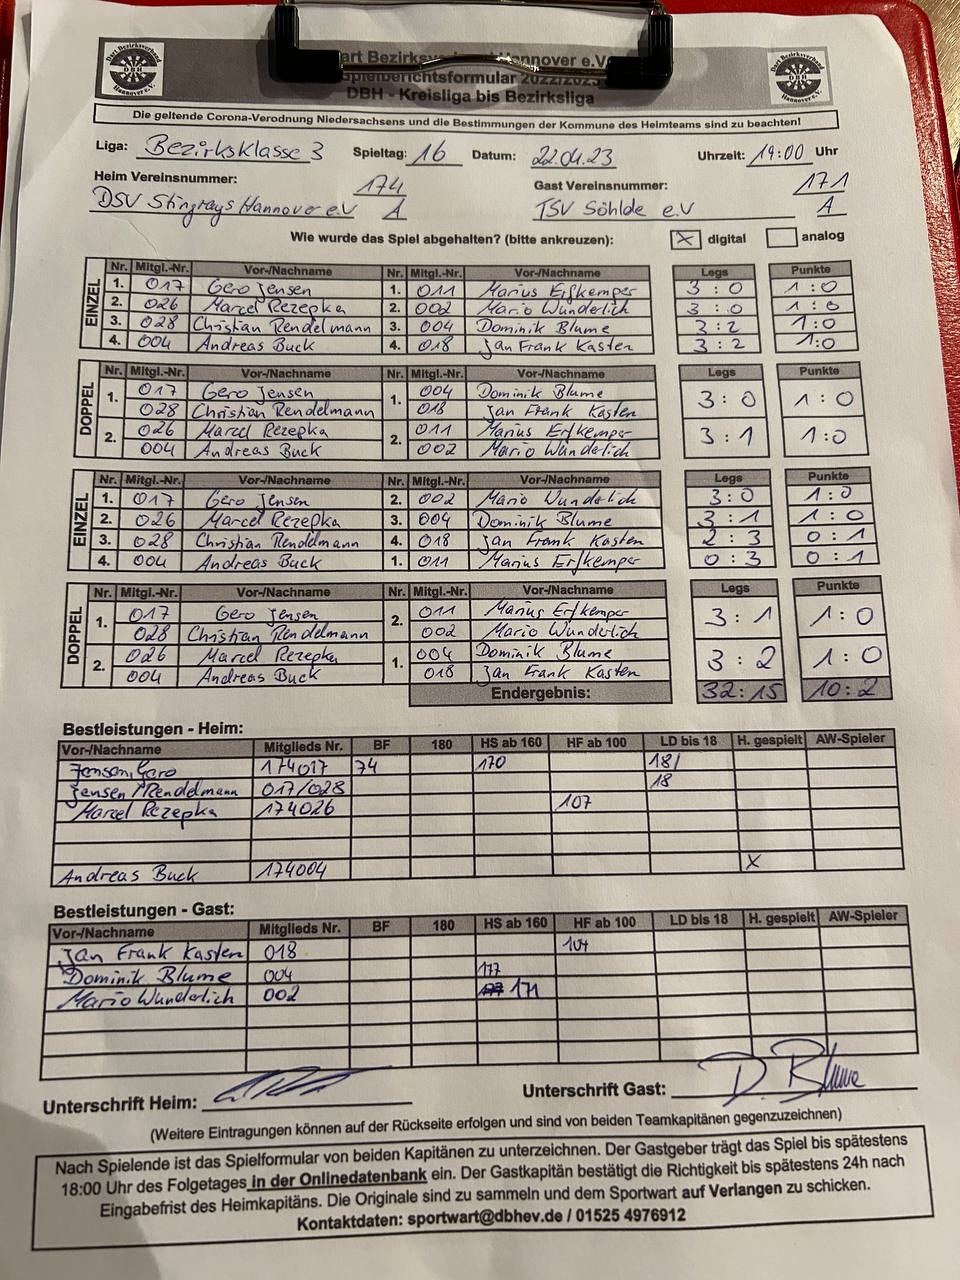 Dart Bezirksverband Hannover e.V.
Spielberichtsformular 2022/2023
DBH - Kreisliga bis Bezirksliga
Die geltende Corona-Verodnung Niedersachsens und die Bestimmungen der Kommune des Heimteams sind zu beachten!
Liga: Bezirksklasse 3 Spieltag: 16 Datum: 22.04.23 Uhrzeit: 19:00 Uhr
Heim Vereinsnummer: 174 Gast Vereinsnummer: 171
DSV Stingrays Hannover e.V A TSV Söhlde e.V A
Wie wurde das Spiel abgehalten? (bitte ankreuzen): X digital analog
EINZEL
Nr. Mitgl.-Nr. Vor-/Nachname Nr. Mitgl.-Nr. Vor-/Nachname Legs Punkte
1. 017 Gero Jensen 1. 011 Marius Erfkemper 3:0 1:0
2. 026 Marcel Rezepka 2. 002 Mario Wunderlich 3:0 1:0
3. 028 Christian Rendelmann 3. 004 Dominik Blume 3:2 1:0
4. 004 Andreas Buck 4. 018 Jan Frank Kasten 3:2 1:0
DOPPEL
Nr. Mitgl.-Nr. Vor-/Nachname Nr. Mitgl.-Nr. Vor-/Nachname Legs Punkte
1. 017 Gero Jensen 1. 004 Dominik Blume 3:0 1:0
028 Christian Rendelmann 018 Jan Frank Kasten
2. 026 Marcel Rezepka 2. 011 Marius Erfkemper 3:1 1:0
004 Andreas Buck 002 Mario Wunderlich
EINZEL
Nr. Mitgl.-Nr. Vor-/Nachname Nr. Mitgl.-Nr. Vor-/Nachname Legs Punkte
1. 017 Gero Jensen 2. 002 Mario Wunderlich 3:0 1:0
2. 026 Marcel Rezepka 3. 004 Dominik Blume 3:1 1:0
3. 028 Christian Rendelmann 4. 018 Jan Frank Kasten 2:3 0:1
4. 004 Andreas Buck 1. 011 Marius Erfkemper 0:3 0:1
DOPPEL
Nr. Mitgl.-Nr. Vor-/Nachname Nr. Mitgl.-Nr. Vor-/Nachname Legs Punkte
1. 017 Gero Jensen 2. 011 Marius Erfkemper 3:1 1:0
028 Christian Rendelmann 002 Mario Wunderlich
2. 026 Marcel Rezepka 1. 004 Dominik Blume 3:2 1:0
004 Andreas Buck 018 Jan Frank Kasten
Endergebnis: 32:15 10:2
Bestleistungen - Heim:
Vor-/Nachname Mitglieds Nr. BF 180 HS ab 160 HF ab 100 LD bis 18 H. gespielt AW-Spieler
Jensen, Gero 174017 74 170 18/
Jensen/Rendelmann 017/028 18
Marcel Rezepka 174026 107
Andreas Buck 174004 X
Bestleistungen - Gast:
Vor-/Nachname Mitglieds Nr. BF 180 HS ab 160 HF ab 100 LD bis 18 H. gespielt AW-Spieler
Jan Frank Kasten 018 104
Dominik Blume 004 177
Mario Wunderlich 002 171
Unterschrift Heim: Unterschrift Gast: D. Blume
(Weitere Eintragungen können auf der Rückseite erfolgen und sind von beiden Teamkapitänen gegenzuzeichnen)
Nach Spielende ist das Spielformular von beiden Kapitänen zu unterzeichnen. Der Gastgeber trägt das Spiel bis spätestens
18:00 Uhr des Folgetages in der Onlinedatenbank ein. Der Gastkapitän bestätigt die Richtigkeit bis spätestens 24h nach
Eingabefrist des Heimkapitäns. Die Originale sind zu sammeln und dem Sportwart auf Verlangen zu schicken.
Kontaktdaten: sportwart@dbhev.de / 01525 4976912